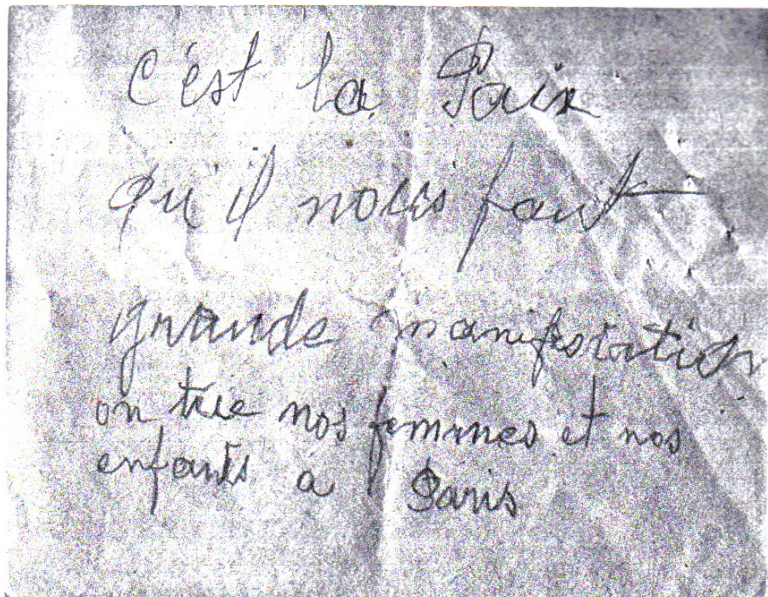 C'est la Paix
qu'il nous faut
grande manifestation
on tue nos femmes et nos
enfants a Paris